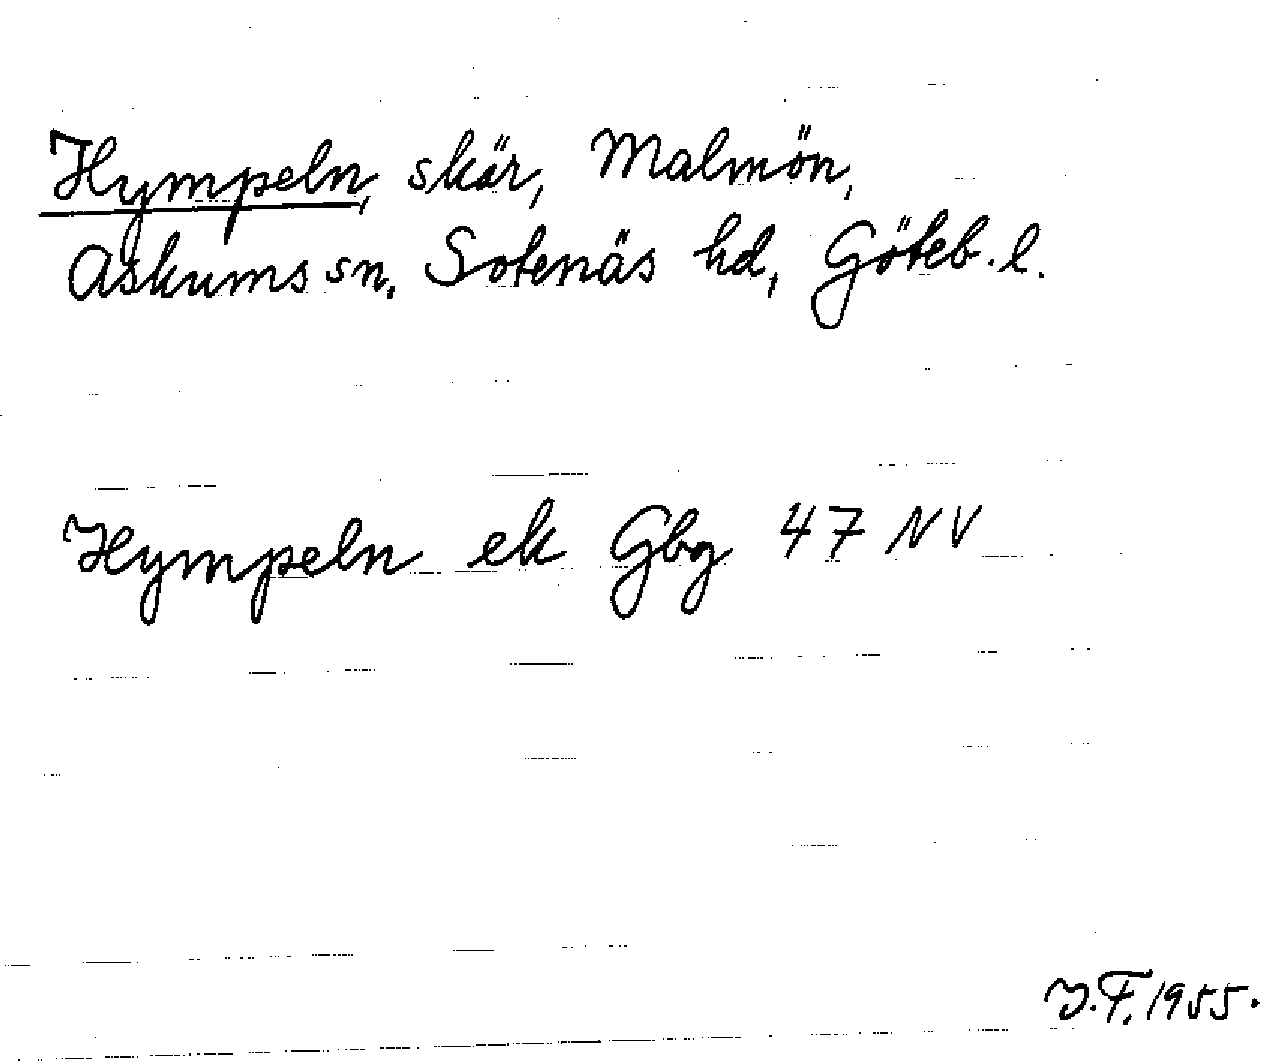 Hympeln, skär, Malmön,
Askums sn. Sotenäs hd, Göteb. l.
Hympeln ek Gbg 47 NV
J.F. 1955.